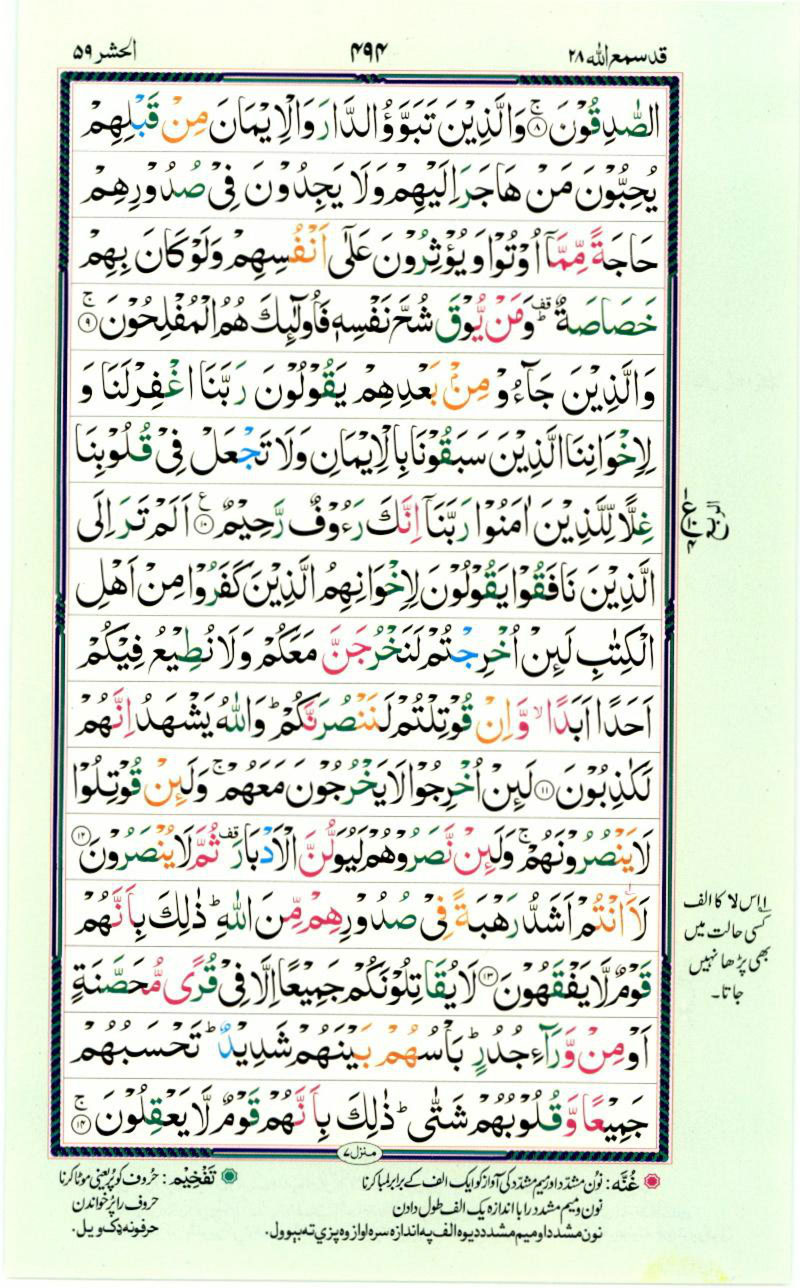 قدسمع الله ۲۸
۴۹۴
الحشر ۵۹
الصّٰدِقُوْنَ ۚ۝۸ وَالَّذِيْنَ تَبَوَّؤُ الدَّارَ وَالْاِيْمَانَ مِنْ قَبْلِهِمْ
يُحِبُّوْنَ مَنْ هَاجَرَ اِلَيْهِمْ وَلَا يَجِدُوْنَ فِىْ صُدُوْرِهِمْ
حَاجَةً مِّمَّاۤ اُوْتُوْا وَيُؤْثِرُوْنَ عَلٰٓى اَنْفُسِهِمْ وَلَوْ كَانَ بِهِمْ
خَصَاصَةٌ ؕقف وَمَنْ يُّوْقَ شُحَّ نَفْسِهٖ فَاُولٰٓئِكَ هُمُ الْمُفْلِحُوْنَ ۚ۝۹
وَالَّذِيْنَ جَآءُوْ مِنْۢ بَعْدِهِمْ يَقُوْلُوْنَ رَبَّنَا اغْفِرْ لَنَا وَ
لِاِخْوَانِنَا الَّذِيْنَ سَبَقُوْنَا بِالْاِيْمَانِ وَلَا تَجْعَلْ فِىْ قُلُوْبِنَا
غِلًّا لِّلَّذِيْنَ اٰمَنُوْا رَبَّنَاۤ اِنَّكَ رَءُوْفٌ رَّحِيْمٌ ۝۱۰ع اَلَمْ تَرَ اِلَى
الَّذِيْنَ نَافَقُوْا يَقُوْلُوْنَ لِاِخْوَانِهِمُ الَّذِيْنَ كَفَرُوْا مِنْ اَهْلِ
الْكِتٰبِ لَئِنْ اُخْرِجْتُمْ لَنَخْرُجَنَّ مَعَكُمْ وَلَا نُطِيْعُ فِيْكُمْ
اَحَدًا اَبَدًا ۙ وَّاِنْ قُوْتِلْتُمْ لَنَنْصُرَنَّكُمْ ؕ وَاللّٰهُ يَشْهَدُ اِنَّهُمْ
لَكٰذِبُوْنَ ۝۱۱ لَئِنْ اُخْرِجُوْا لَا يَخْرُجُوْنَ مَعَهُمْ ۚ وَلَئِنْ قُوْتِلُوْا
لَا يَنْصُرُوْنَهُمْ ۚ وَلَئِنْ نَّصَرُوْهُمْ لَيُوَلُّنَّ الْاَدْبَارَ قف ثُمَّ لَا يُنْصَرُوْنَ ۝۱۲
لَا۠اَنْتُمْ اَشَدُّ رَهْبَةً فِىْ صُدُوْرِهِمْ مِّنَ اللّٰهِ ؕ ذٰلِكَ بِاَنَّهُمْ
قَوْمٌ لَّا يَفْقَهُوْنَ ۝۱۳ لَا يُقَاتِلُوْنَكُمْ جَمِيْعًا اِلَّا فِىْ قُرًى مُّحَصَّنَةٍ
اَوْ مِنْ وَّرَآءِ جُدُرٍ ؕ بَاْسُهُمْ بَيْنَهُمْ شَدِيْدٌ ؕ تَحْسَبُهُمْ
جَمِيْعًا وَّقُلُوْبُهُمْ شَتّٰى ؕ ذٰلِكَ بِاَنَّهُمْ قَوْمٌ لَّا يَعْقِلُوْنَ ۚ۝۱۴
منزل ۷
الربع
ع
۴
ا؎ اس لا کا الف
کسی حالت میں
بھی پڑھا نہیں
جاتا۔
غُنَّه: نُون مشدّد اور میم مشدّد کی آواز کو ایک الف کے برابر لمبا کرنا
نون و میم مشدد را با اندازه یک الف طول دادن
نون مشدد او میم مشدد دیوه الف په اندازه سره اواز وه پزې ته بېوول.
تَفْخِيْم: حروف کو پُر یعنی موٹا کرنا
حروف را پُر خواندن
حرفونه ډک ویل.